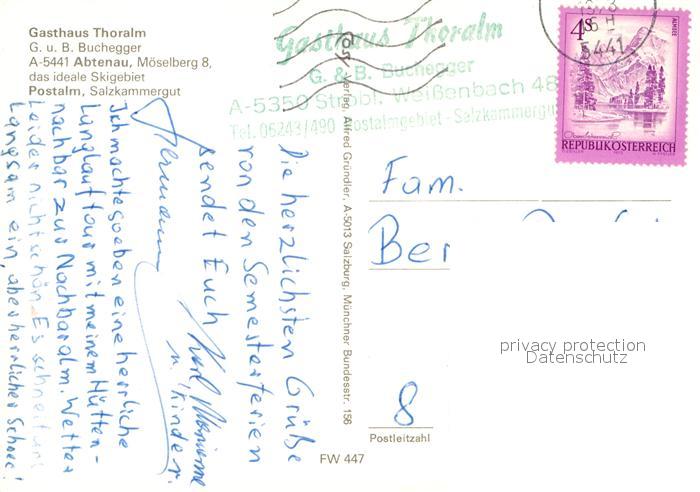 Gasthaus Thoralm
G. u. B. Buchegger
A-5441 Abtenau, Möselberg 8,
das ideale Skigebiet
Postalm, Salzkammergut
Gasthaus Thoralm
G. & B. Buchegger
A-5350 Strobl, Weißenbach 48
Tel. 06243/490 Postalmgebiet - Salzkammergut
5441
4 S
ALMSEE
REPUBLIK ÖSTERREICH
Die herzlichsten Grüße
von den Semesterferien
sendet Euch
Karl, Marianne
u. Kinder.
Hermann
Ich machte soeben eine herrliche
Langlauftour mit meinem Hütten-
nachbar zur Nachbaralm. Wetter
Leider nicht schön. Es schneit uns
Langsam ein, aber herrlicher Schnee!
Verlag Alfred Gründler, A-5013 Salzburg, Münchner Bundesstr. 156
Fam.
Ber
privacy protection
Datenschutz
8
Postleitzahl
FW 447